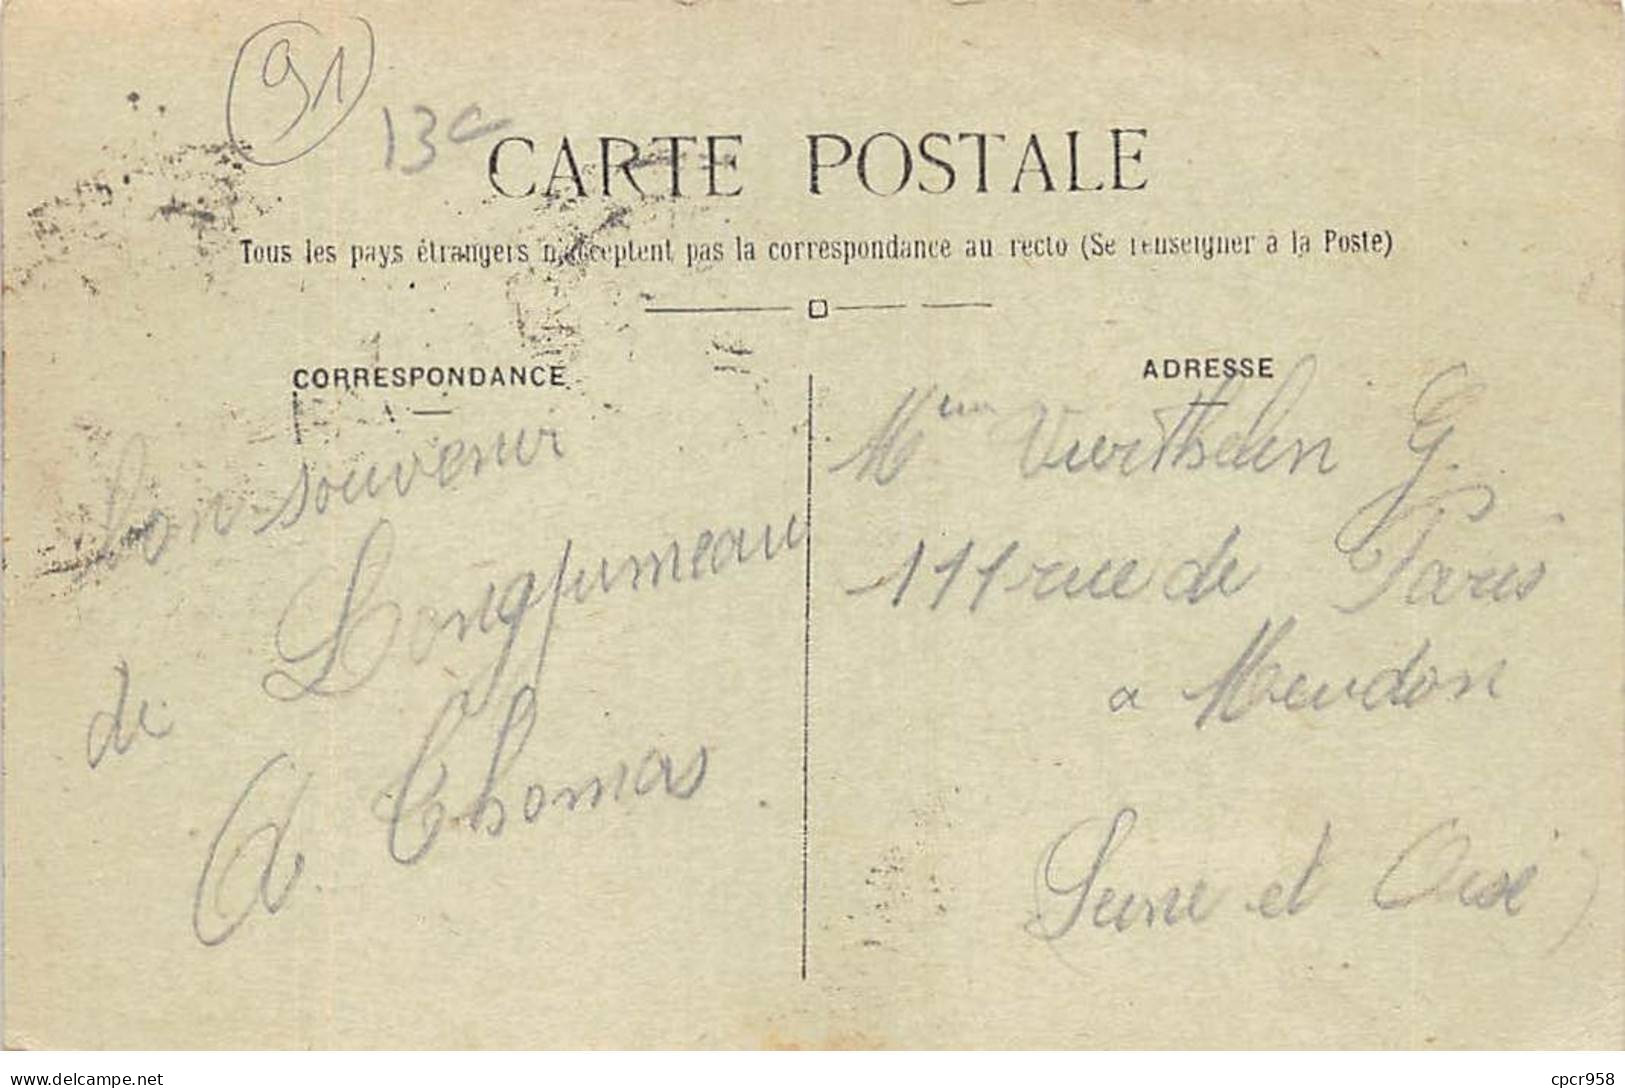 91
13c
CARTE POSTALE
Tous les pays étrangers n'acceptent pas la correspondance au recto (Se renseigner à la Poste)
CORRESPONDANCE
bon souvenir
de Longjumeau
A. Thomas.
ADRESSE
Mme G.
111 rue de Paris
a Meudon
(Seine et Oise)
delcampe.net
cpcr958